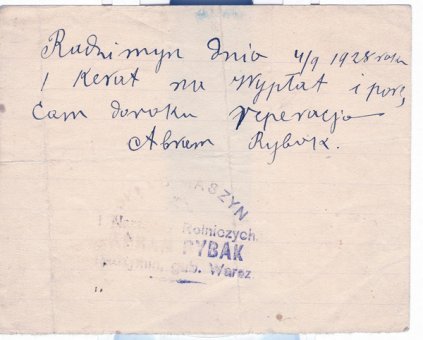 Radzimyn dnia 4/9 1928 roku
1 Kerat na Wypłat i porę
Cam doroku reperacja
Abram Rybak.
MASZYN
i Rolniczych.
RYBAK
gub. Warsz